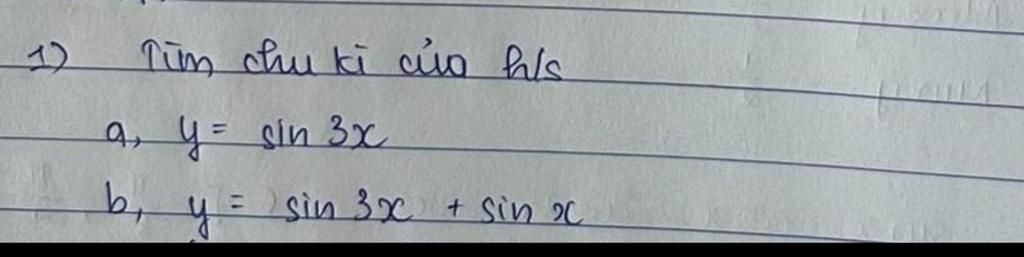 1) Tìm chu kì của h/s
a, y = sin 3x
b, y = sin 3x + sin x